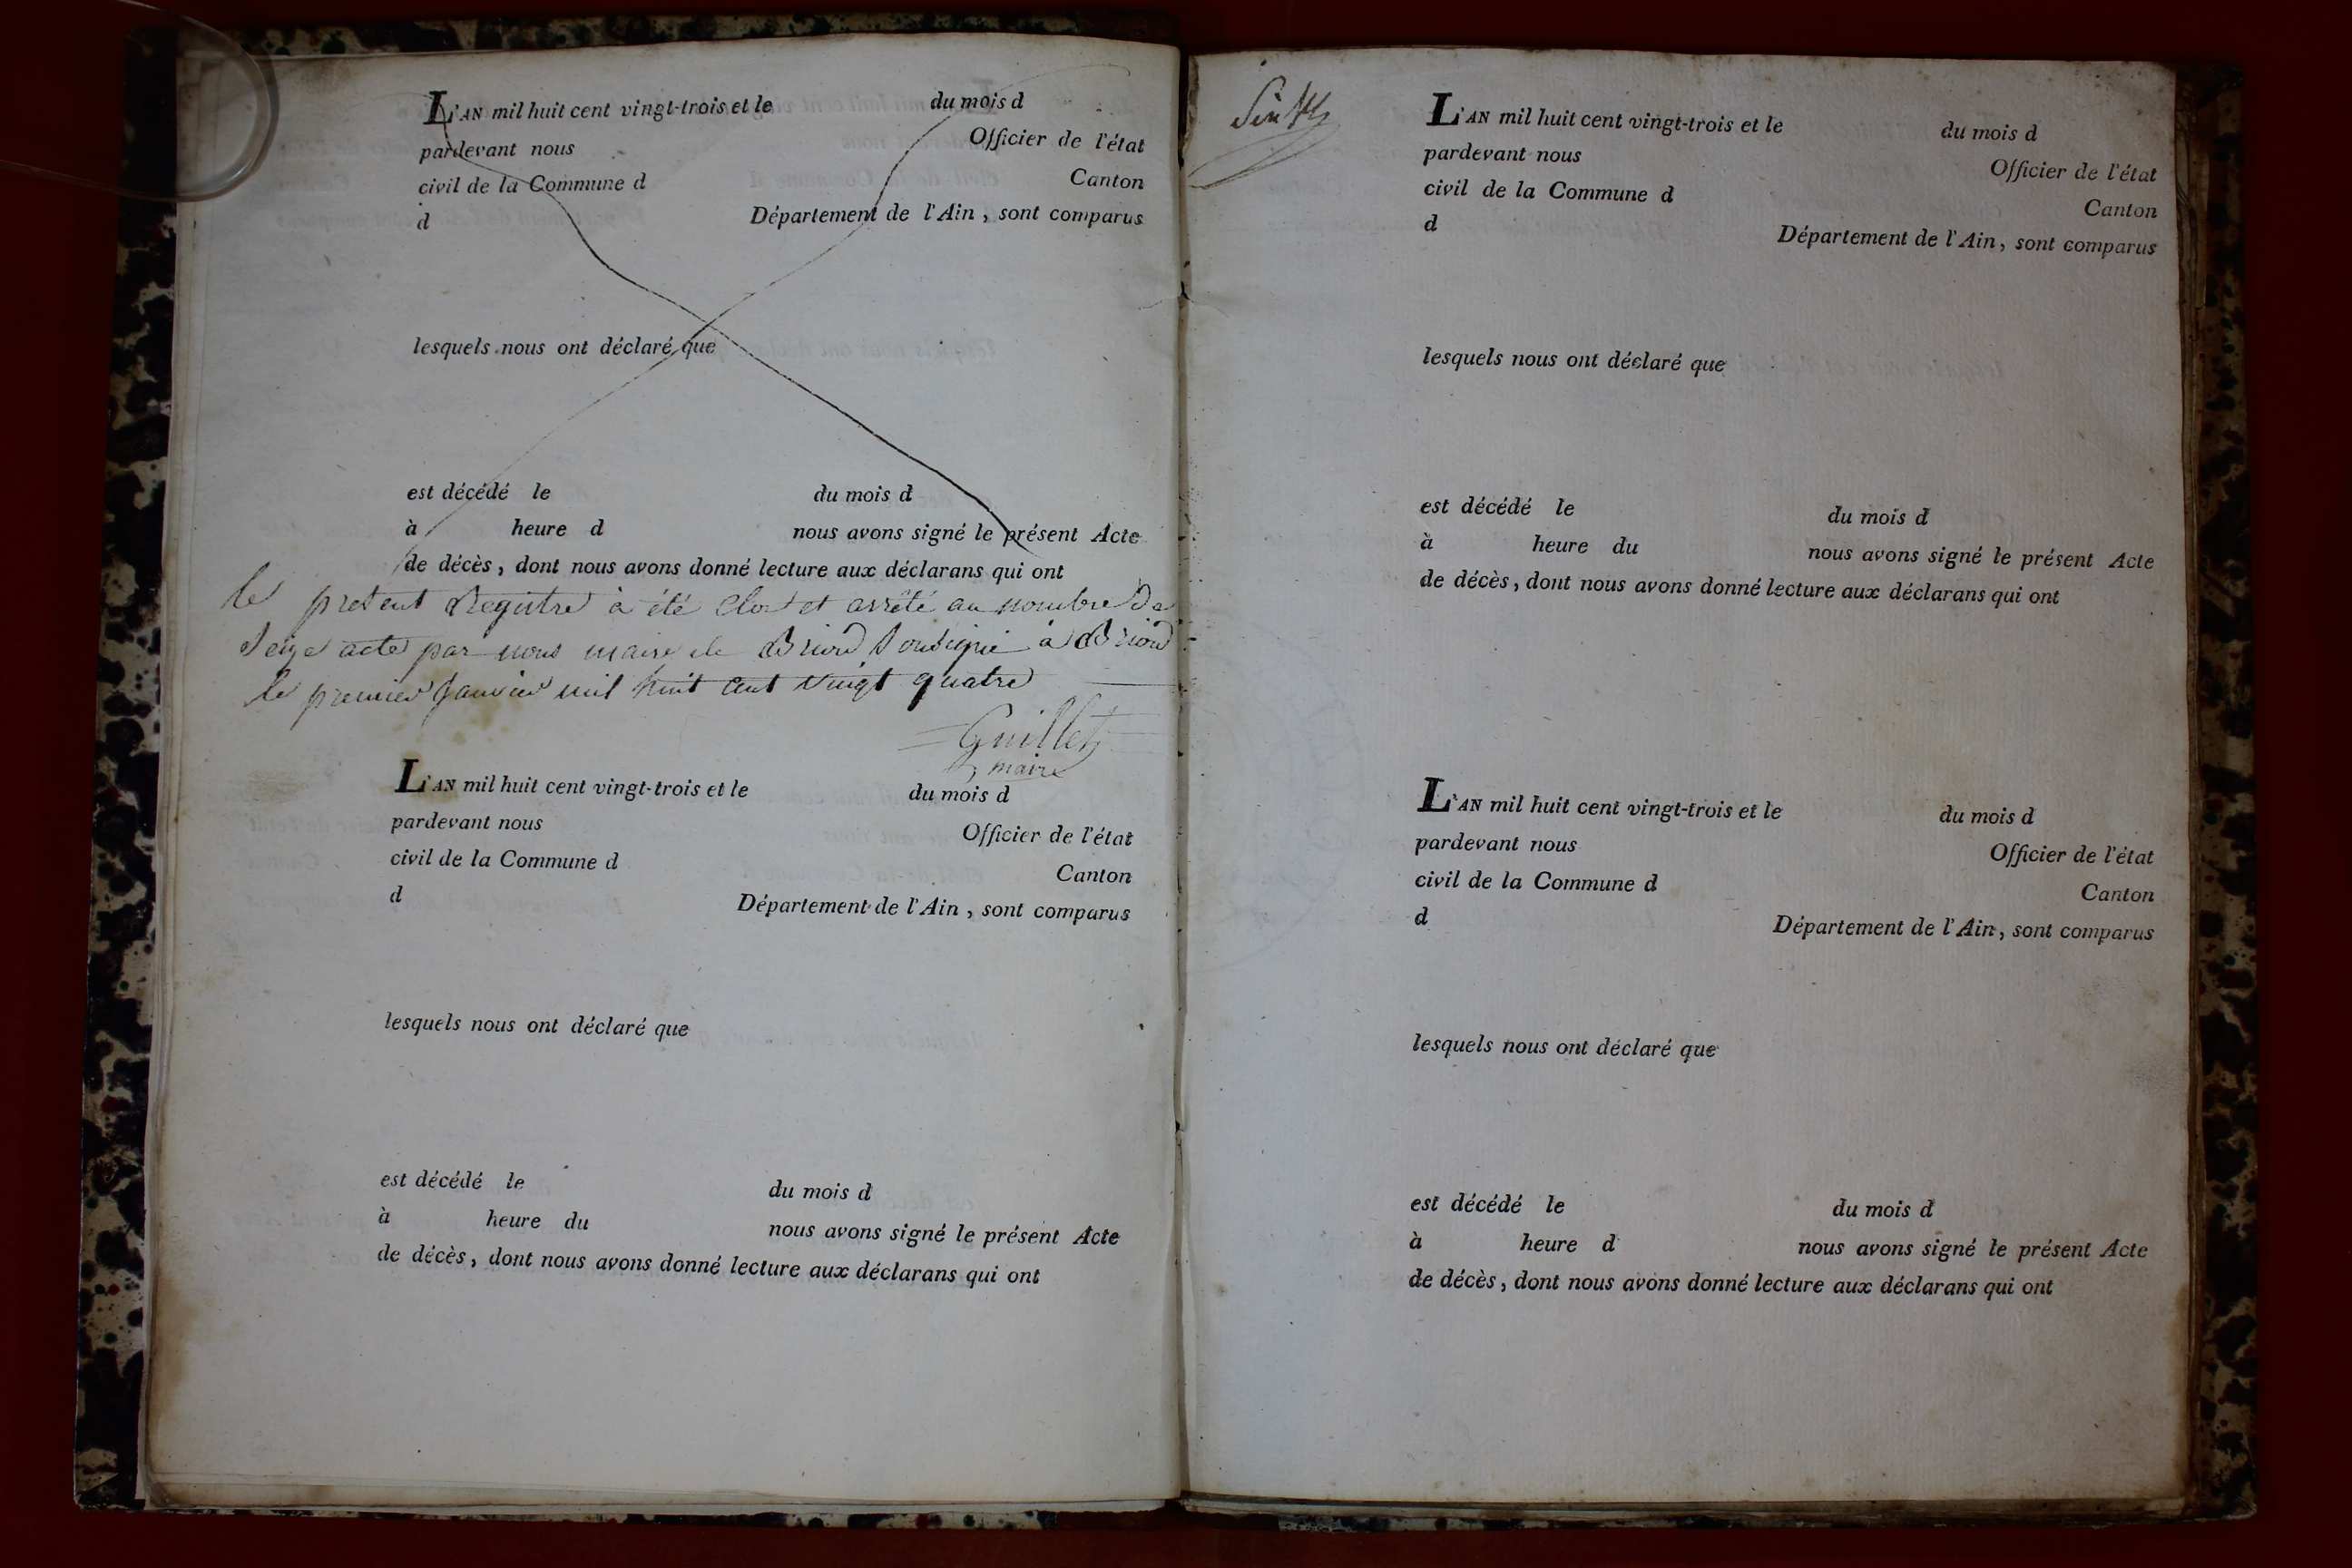 L'AN mil huit cent vingt-trois et le du mois d
pardevant nous Officier de l'état
civil de la Commune d Canton
d Département de l'Ain, sont comparus
lesquels nous ont déclaré que
est décédé le du mois d
à heure d nous avons signé le présent Acte
de décès, dont nous avons donné lecture aux déclarans qui ont
le present Registre à été clos et arrêté au nombre de
Seize acte par nous maire de Briord Soussigné à Briord
le premier Janvier mil huit cent vingt quatre
Guillet
maire
L'AN mil huit cent vingt-trois et le du mois d
pardevant nous Officier de l'état
civil de la Commune d Canton
d Département de l'Ain, sont comparus
lesquels nous ont déclaré que
est décédé le du mois d
à heure du nous avons signé le présent Acte
de décès, dont nous avons donné lecture aux déclarans qui ont
L'AN mil huit cent vingt-trois et le du mois d
pardevant nous Officier de l'état
civil de la Commune d Canton
d Département de l'Ain, sont comparus
lesquels nous ont déclaré que
est décédé le du mois d
à heure du nous avons signé le présent Acte
de décès, dont nous avons donné lecture aux déclarans qui ont
L'AN mil huit cent vingt-trois et le du mois d
pardevant nous Officier de l'état
civil de la Commune d Canton
d Département de l'Ain, sont comparus
lesquels nous ont déclaré que
est décédé le du mois d
à heure d nous avons signé le présent Acte
de décès, dont nous avons donné lecture aux déclarans qui ont